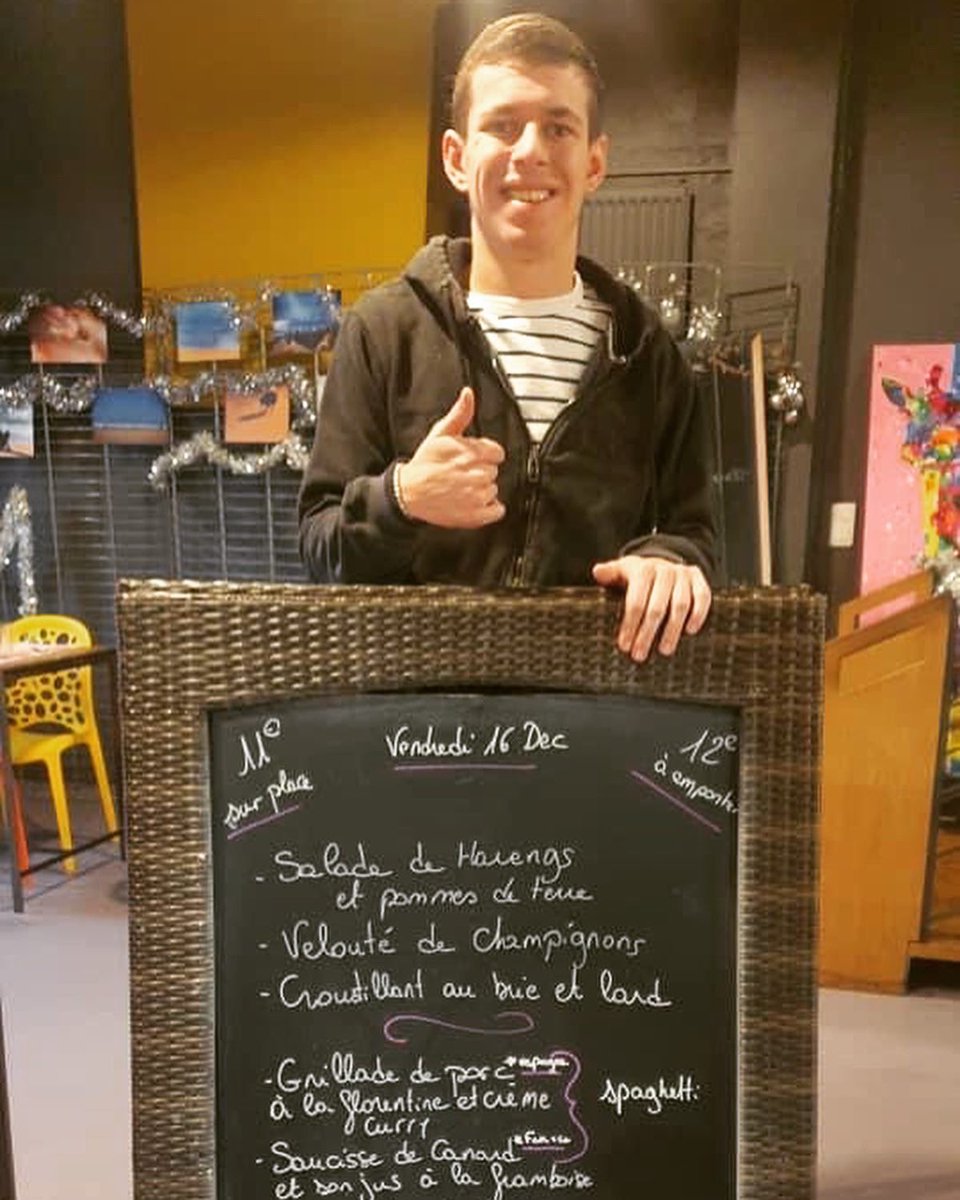 11€
sur place
Vendredi 16 Dec
12€
à emporter
- Salade de Harengs
et pommes de terre
- Velouté de Champignons
- Croustillant au brie et lard
- Grillade de porc *espagne
à la florentine et crème
curry
spaghetti
- Saucisse de Canard *France
et son jus à la framboise